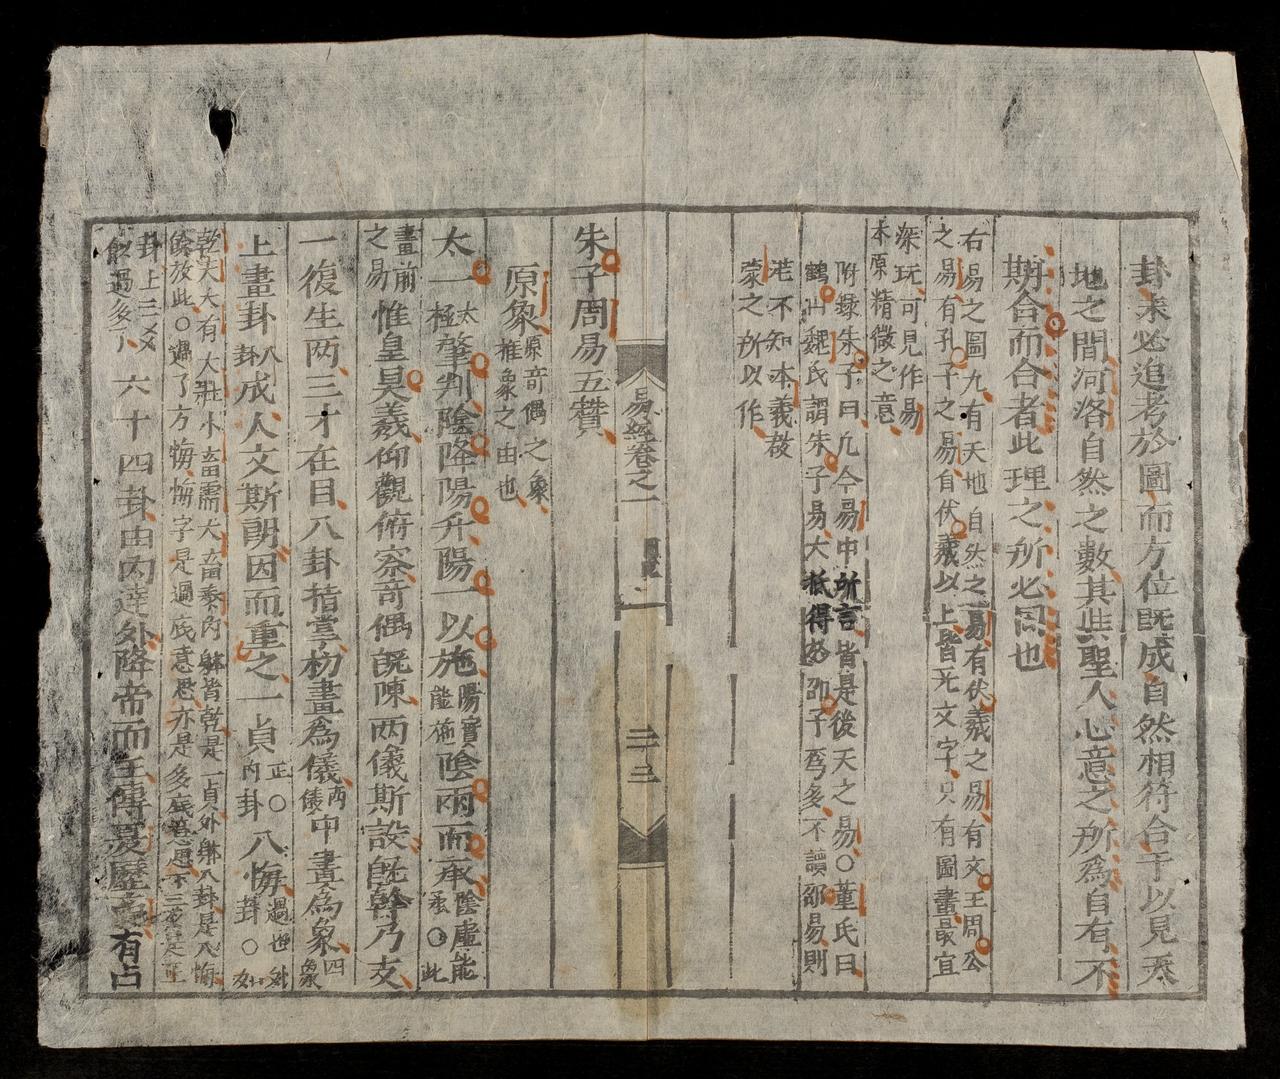 卦未必追考於圖而方位既成自然相符合于以見天
地之間河洛自然之數其與聖人心意之所爲自有不
期合而合者此理之所必同也
右易之圖九有天地自然之易有伏羲之易有文王周公
之易有孔子之易自伏羲以上皆无文字只有圖畫最宜
深玩可見作易
本原精微之意
附錄朱子曰凡今易中所言皆是後天之易○董氏曰
鶴山魏氏謂朱子易大抵得於邵子爲多不讀邵易則
茫不知本義啓
蒙之所以作
易經卷之一
二
二十三
朱子周易五贊
原象原奇偶之象
推象之由也
太一太極肇判陰降陽升陽一以施陽實能施陰兩而承陰虛能承○此
畫前之易惟皇昊羲仰觀俯察奇偶既陳兩儀斯設既幹乃支
一復生兩三才在目八卦指掌初畫爲儀兩儀中畫爲象四象
上畫卦八卦成人文斯朗因而重之一貞正○內卦八悔過也外卦○如
乾夬大有大壯小畜需大畜泰內體皆乾是一貞外體八卦是八悔
餘放此○過了方悔悔字是過底意思亦是多底意思下三爻是正
卦上三爻
餘過多了六十四卦由內達外降帝而王傳夏歷商有占